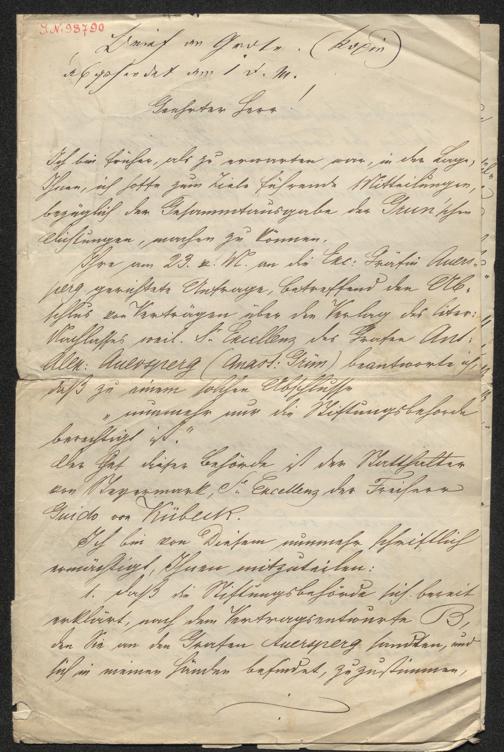 J.N. 98790
Brief an Grote. (Kopie)
abgesendet am 1. d. M.
Geehrter Herr!
Ich bin früher, als zu erwarten war, in der Lage,
Ihnen, ich hoffe zum Ziele führende Mitteilungen,
bezüglich der Gesammtausgabe der Grün'schen
Dichtungen, machen zu können.
Ihre am 23. v. M. an die Exc: Gräfin Auers-
perg gerichtete Anfrage, betreffend den Ab-
schluss von Verträgen über den Verlag des liter:
Nachlasses weil. Sr. Excellenz des Grafen Ant.
Alex: Auersperg (Anast: Grün) beantworte ich
daß zu einem solchen Abschlusse
"nunmehr nur die Stiftungsbehörde
berechtigt ist."
Der Chef dieser Behörde ist der Statthalter
von Steyermark, Se. Excellenz der Freiherr
Guido von Kübeck.
Ich bin von Diesem nunmehr schriftlich
ermächtigt, Ihnen mitzuteilen:
1. daß die Stiftungsbehörde sich bereit
erklärt, nach dem Vertragsentwurfe B,
den Sie an den Grafen Auersperg sandten, und
sich in meinen Händen befindet, zuzustimmen,